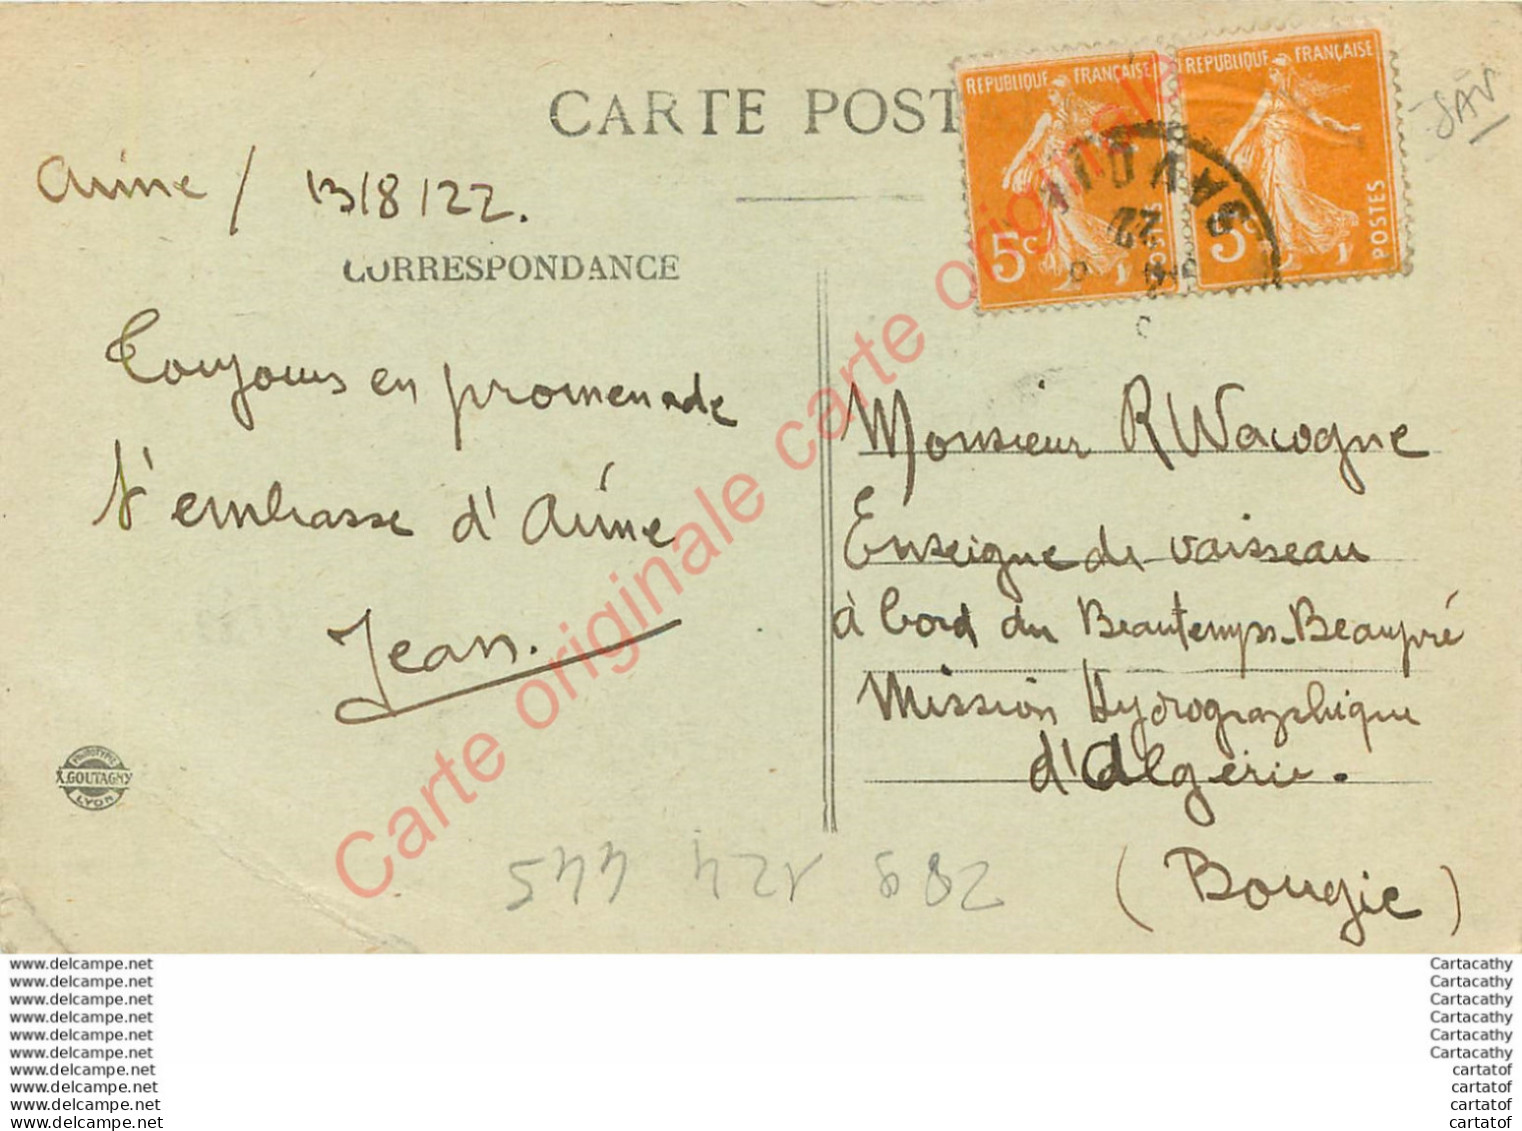 CARTE POST
REPUBLIQUE FRANÇAISE
5c
POSTES
REPUBLIQUE FRANÇAISE
5c
POSTES
SAVOIE
22
SAV
Aime / 13/8/22.
CORRESPONDANCE
Toujours en promenade
t'embrasse d'Aime
Jean.
Monsieur R Wacogne
Enseigne de vaisseau
à bord du Beautemps-Beaupré
Mission Hydrographique
d'Algérie.
(Bougie)
PHOTOTYPIE
X.GOUTAGNY
LYON
289 124 445
Carte originale carte originale
www.delcampe.net
www.delcampe.net
www.delcampe.net
www.delcampe.net
www.delcampe.net
www.delcampe.net
www.delcampe.net
www.delcampe.net
www.delcampe.net
www.delcampe.net
Cartacathy
Cartacathy
Cartacathy
Cartacathy
Cartacathy
Cartacathy
cartatof
cartatof
cartatof
cartatof